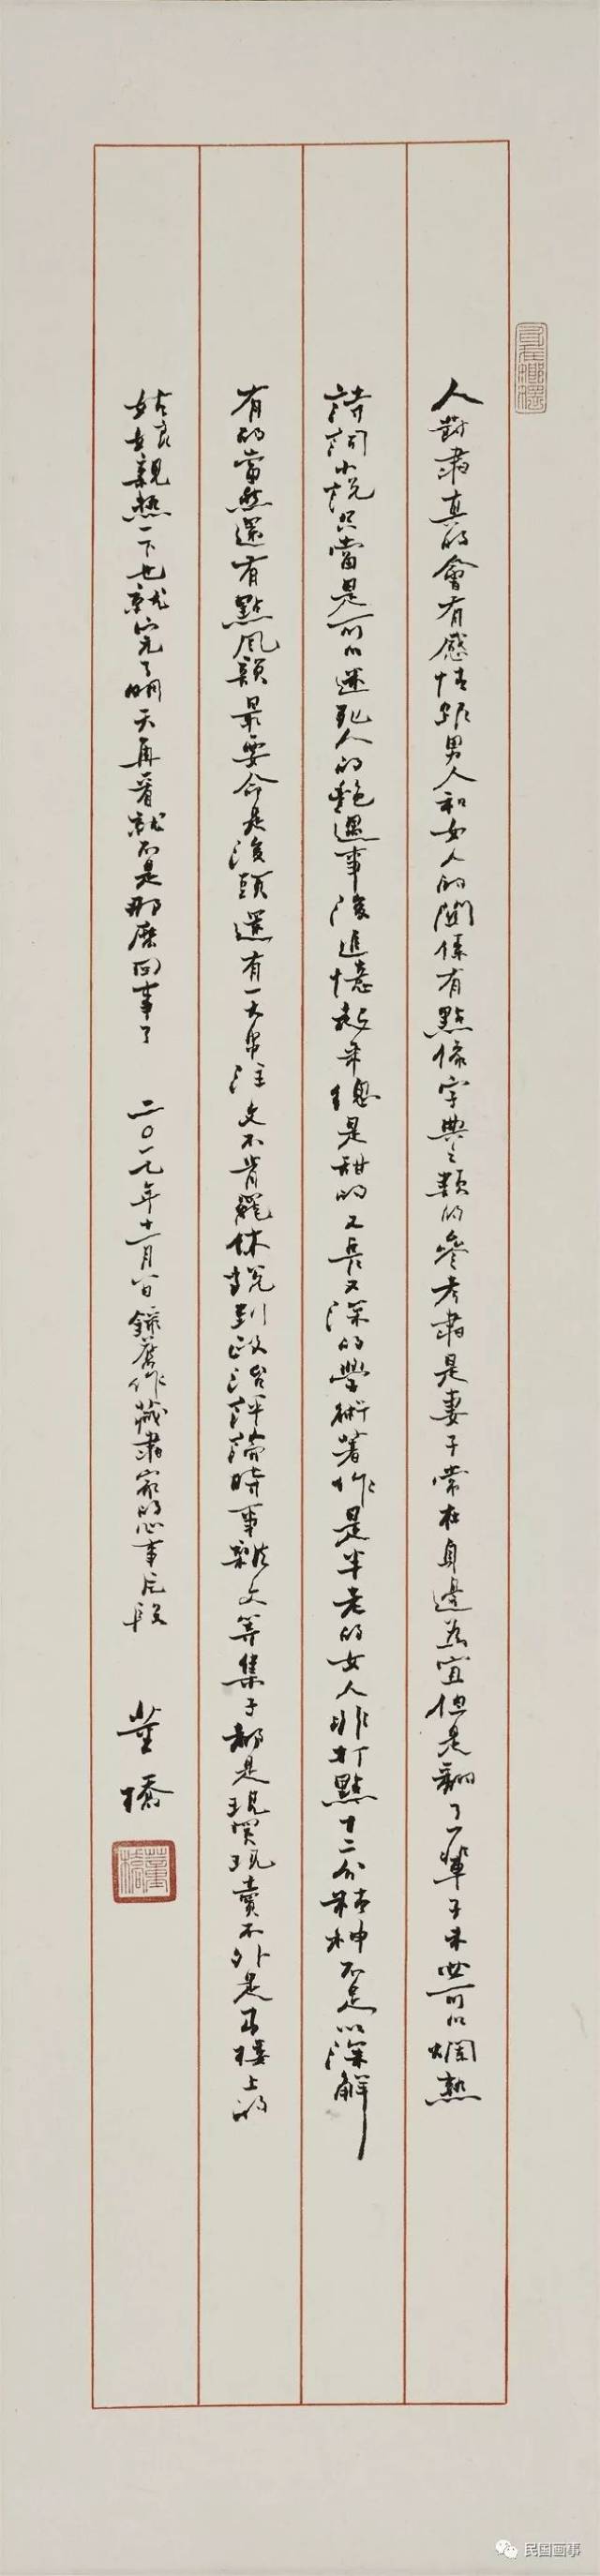 人對書真的會有感情跟男人和女人的關係有點像字典之類的參考書是妻子常在身邊為宜但是翻了一輩子未必可以爛熟
詩詞小說只當是可以迷死人的艷遇事後追憶起來總是甜的又長又深的學術著作是半老的女人非打點十二分精神不足以深解
有的當然還有點風韻最要命是後頭還有一大串注文不肯罷休說到政治評論時事雜文等集子都是現買現賣不外是青樓上的
姑娘親熱一下也就完了明天再看就不是那麼回事了 二〇一九年十一月 錄舊作藏書家的心事片段 董橋
董橋
民国画事